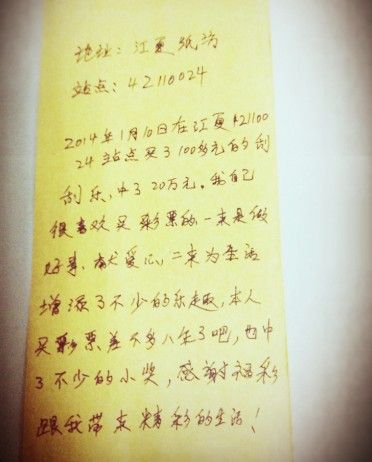 地址：江夏纸坊
站点：42110024
2014年1月10日在江夏421100
24站点买了100多元的刮
刮乐，中了20万元。我自己
很喜欢买彩票的一来是做
好事、献爱心，二来为生活
增添了不少的乐趣，本人
买彩票差不多八年了吧，也中
了不少的小奖，感谢福彩
跟我带来精彩的生活！